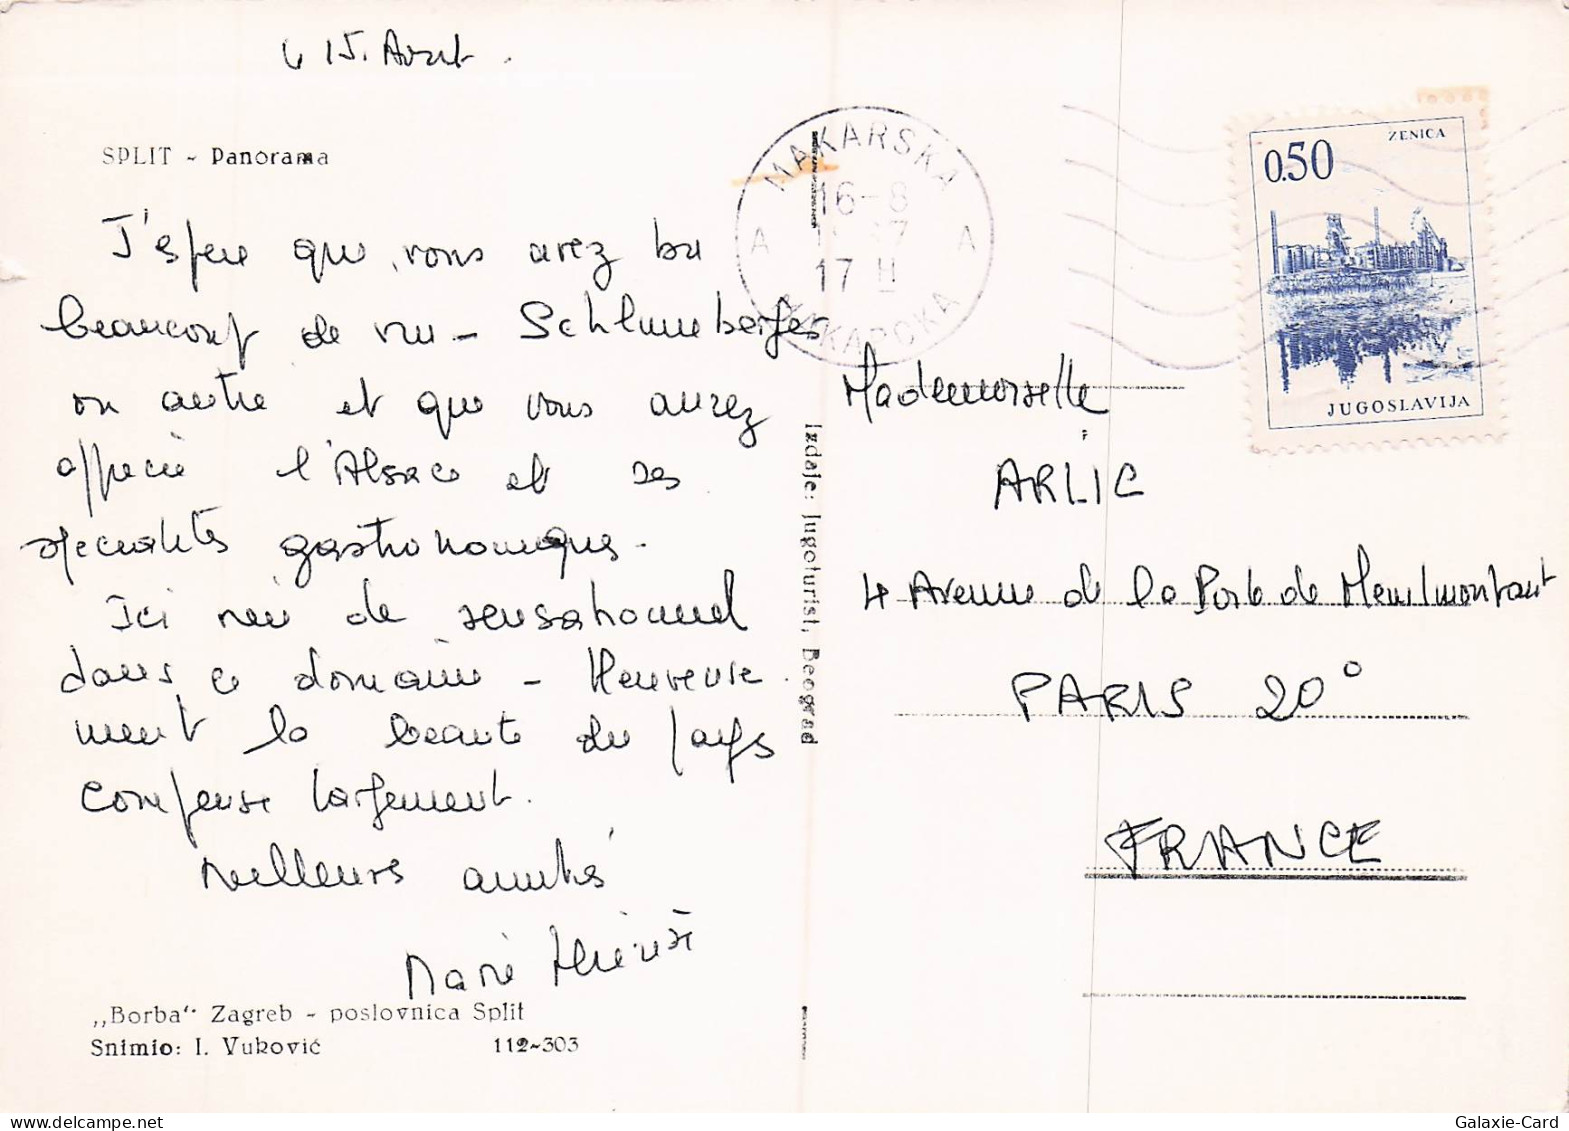 15. Août.
SPLIT - Panorama
J'espère que vous avez bu
beaucoup de vin - Schlumberger
ou autre et que vous aurez
apprécié l'Alsace et ses
spécialités gastronomiques.
Ici rien de sensationnel
dans ce domaine - Heureuse
ment la beauté du pays
compense largement.
Meilleures amitiés
Marie Thérèse
„Borba“ Zagreb - poslovnica Split
Snimio: I. Vuković 112-303
Izdaje: Jugoturist, Beograd
MAKARSKA
16-8
17 II
A A
МАКАРСКА
ZENICA
0.50
JUGOSLAVIJA
Mademoiselle
ARLIC
4 Avenue de la Porte de Menilmontant
PARIS 20°
FRANCE
Galaxie-Card